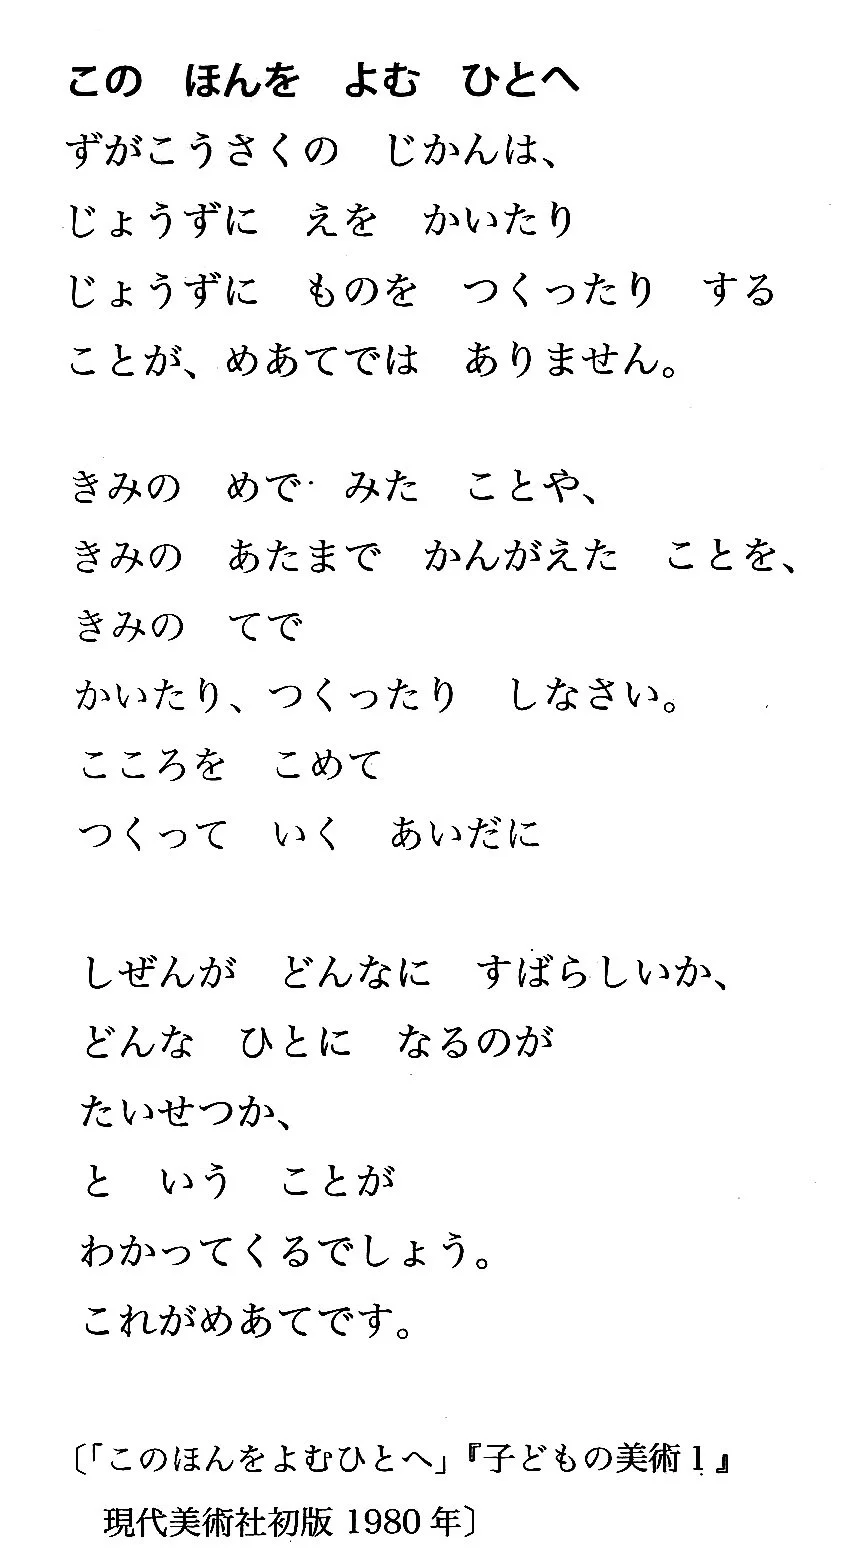 この　ほんを　よむ　ひとへ
ずがこうさくの　じかんは、
じょうずに　えを　かいたり
じょうずに　ものを　つくったり　する
ことが、めあてでは　ありません。
きみの　めで　みた　ことや、
きみの　あたまで　かんがえた　ことを、
きみの　てで
かいたり、つくったり　しなさい。
こころを　こめて
つくって　いく　あいだに
しぜんが　どんなに　すばらしいか、
どんな　ひとに　なるのが
たいせつか、
と　いう　ことが
わかってくるでしょう。
これがめあてです。
〔「このほんをよむひとへ」『子どもの美術1』
現代美術社初版 1980 年〕